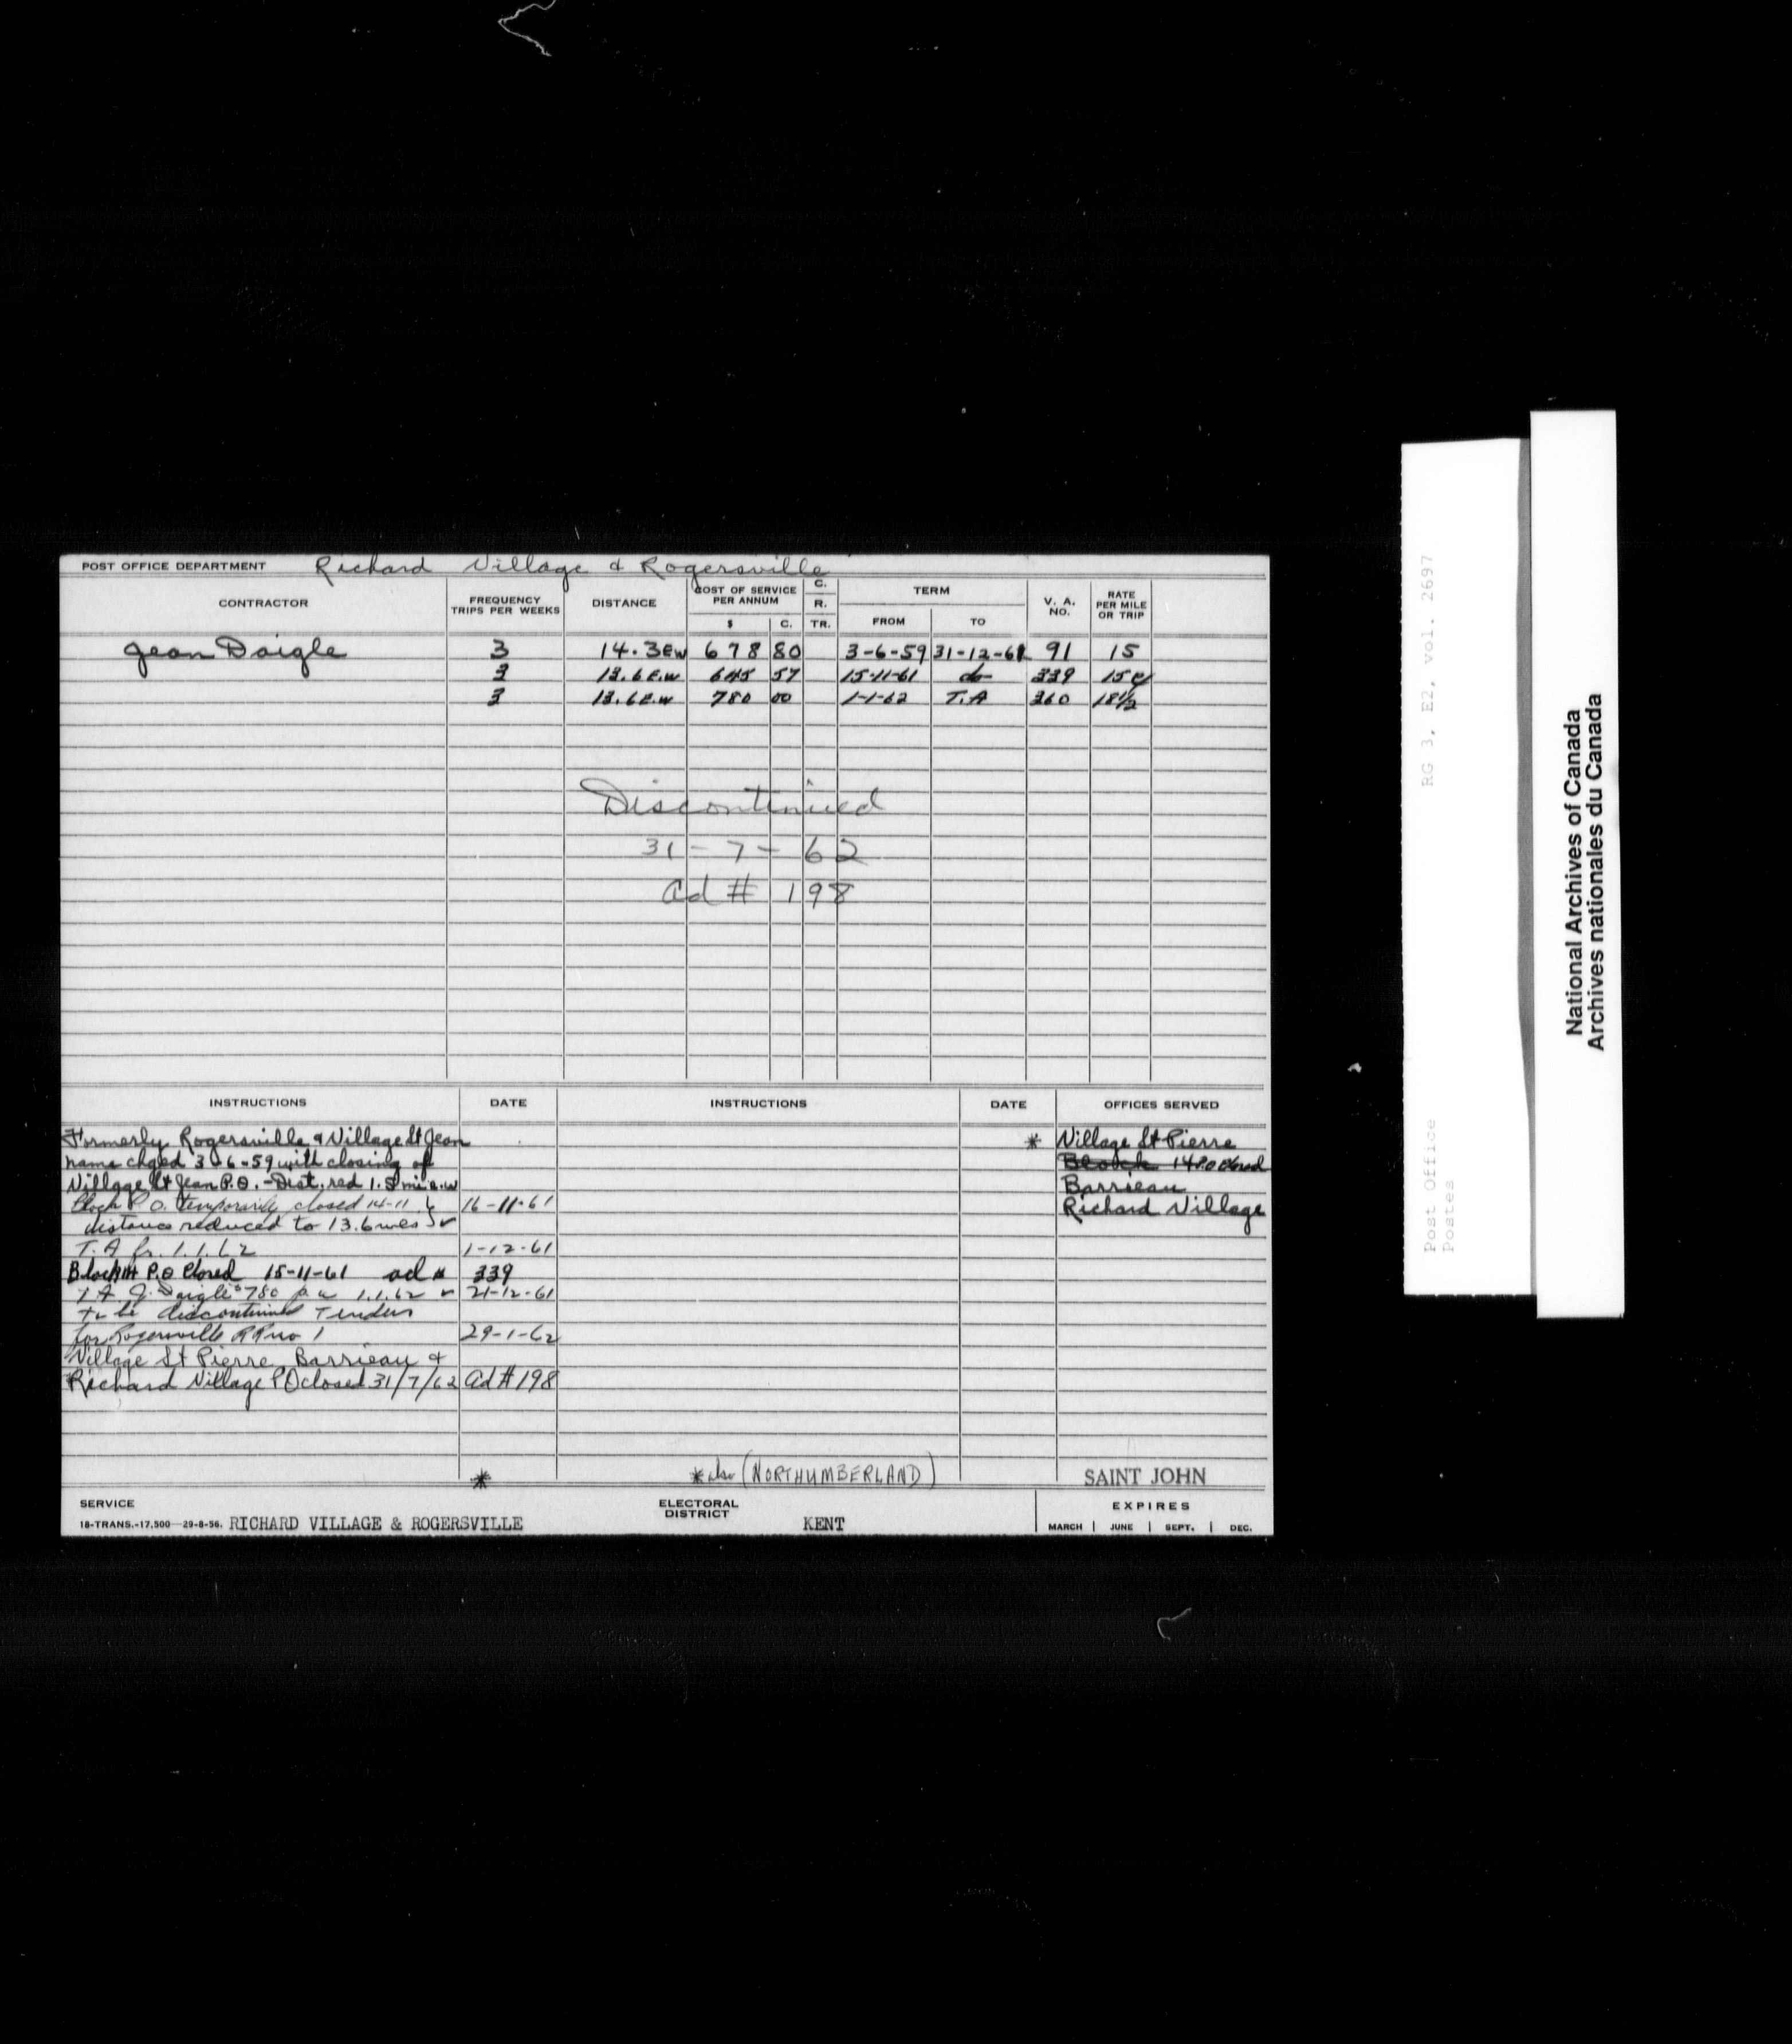 POST OFFICE DEPARTMENT Richard Village & Rogersville
CONTRACTOR FREQUENCY TRIPS PER WEEKS DISTANCE COST OF SERVICE PER ANNUM $ C. C. R. TR. TERM FROM TO V. A. NO. RATE PER MILE OR TRIP
Jean Daigle 3 14.3 EW 678 80 3-6-59 31-12-61 91 15
3 13.6 E.W 645 57 15-11-61 do 339 15¢
3 13.6 E.W 780 00 1-1-62 T.A 360 18½
Discontinued
31-7-62
Ad # 198
INSTRUCTIONS DATE INSTRUCTIONS DATE OFFICES SERVED
Formerly Rogersville & Village St Jean * Village St Pierre
name chged 3-6-59 with closing of Block 14 P.O closed
Village St Jean P.O. - Dist. red 1.5 mi e.w Barrieau
Block P.O. temporarily closed 14-11 16-11-61 Richard Village
distance reduced to 13.6
T.A fr. 1.1.62 1-12-61
Block 14 P.O Closed 15-11-61 ad # 339
T.A. J. Daigle $780 p a 1.1.62 21-12-61
to be discontinued Tenders
for Rogersville RR no 1 29-1-62
Village St Pierre Barrieau &
Richard Village PO closed 31/7/62 Ad # 198
* * also (NORTHUMBERLAND) SAINT JOHN
SERVICE ELECTORAL DISTRICT EXPIRES
18-TRANS.-17,500-29-8-56. RICHARD VILLAGE & ROGERSVILLE KENT MARCH | JUNE | SEPT. | DEC.
RG 3, E2, vol. 2697
Post Office
Postes
National Archives of Canada
Archives nationales du Canada